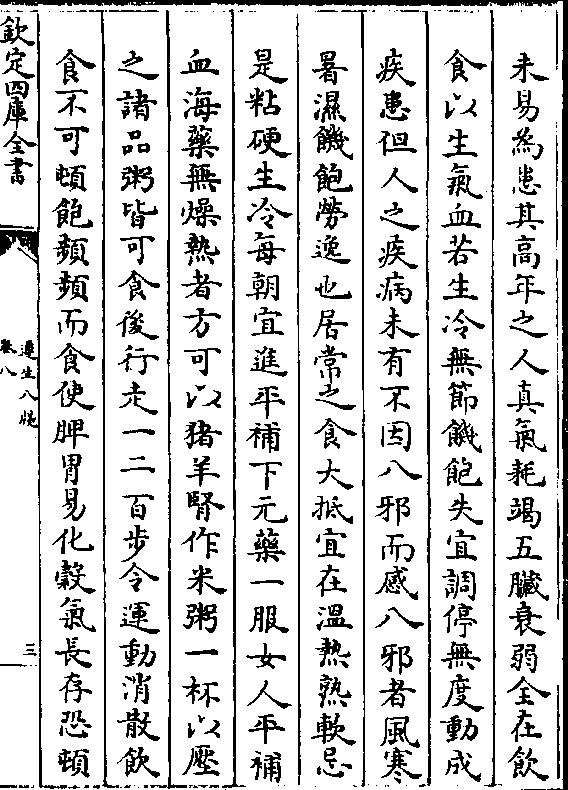 未易為患其高年之人真氣耗竭五臟衰弱全在飲
食以生氣血若生冷無節饑飽失宜調停無度動成
疾患但人之疾病未有不因八邪而感八邪者風寒
暑濕饑飽勞逸也居常之食大抵宜在溫熱熟軟忌
是粘硬生冷每朝宜進平補下元藥一服女人平補
血海藥無燥熱者方可以猪羊腎作米粥一杯以壓
之諸品粥皆可食後行走一二百步令運動消散飲
食不可頓飽頻頻而食使脾胃易化穀氣長存恐頓
欽定四庫全書
遵生八牋
卷八
三